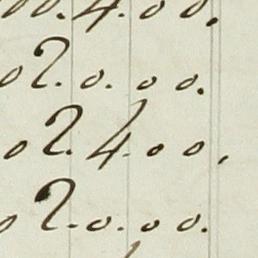 00.4.00.
02.0.00.
02.4.00,
02.0.00.